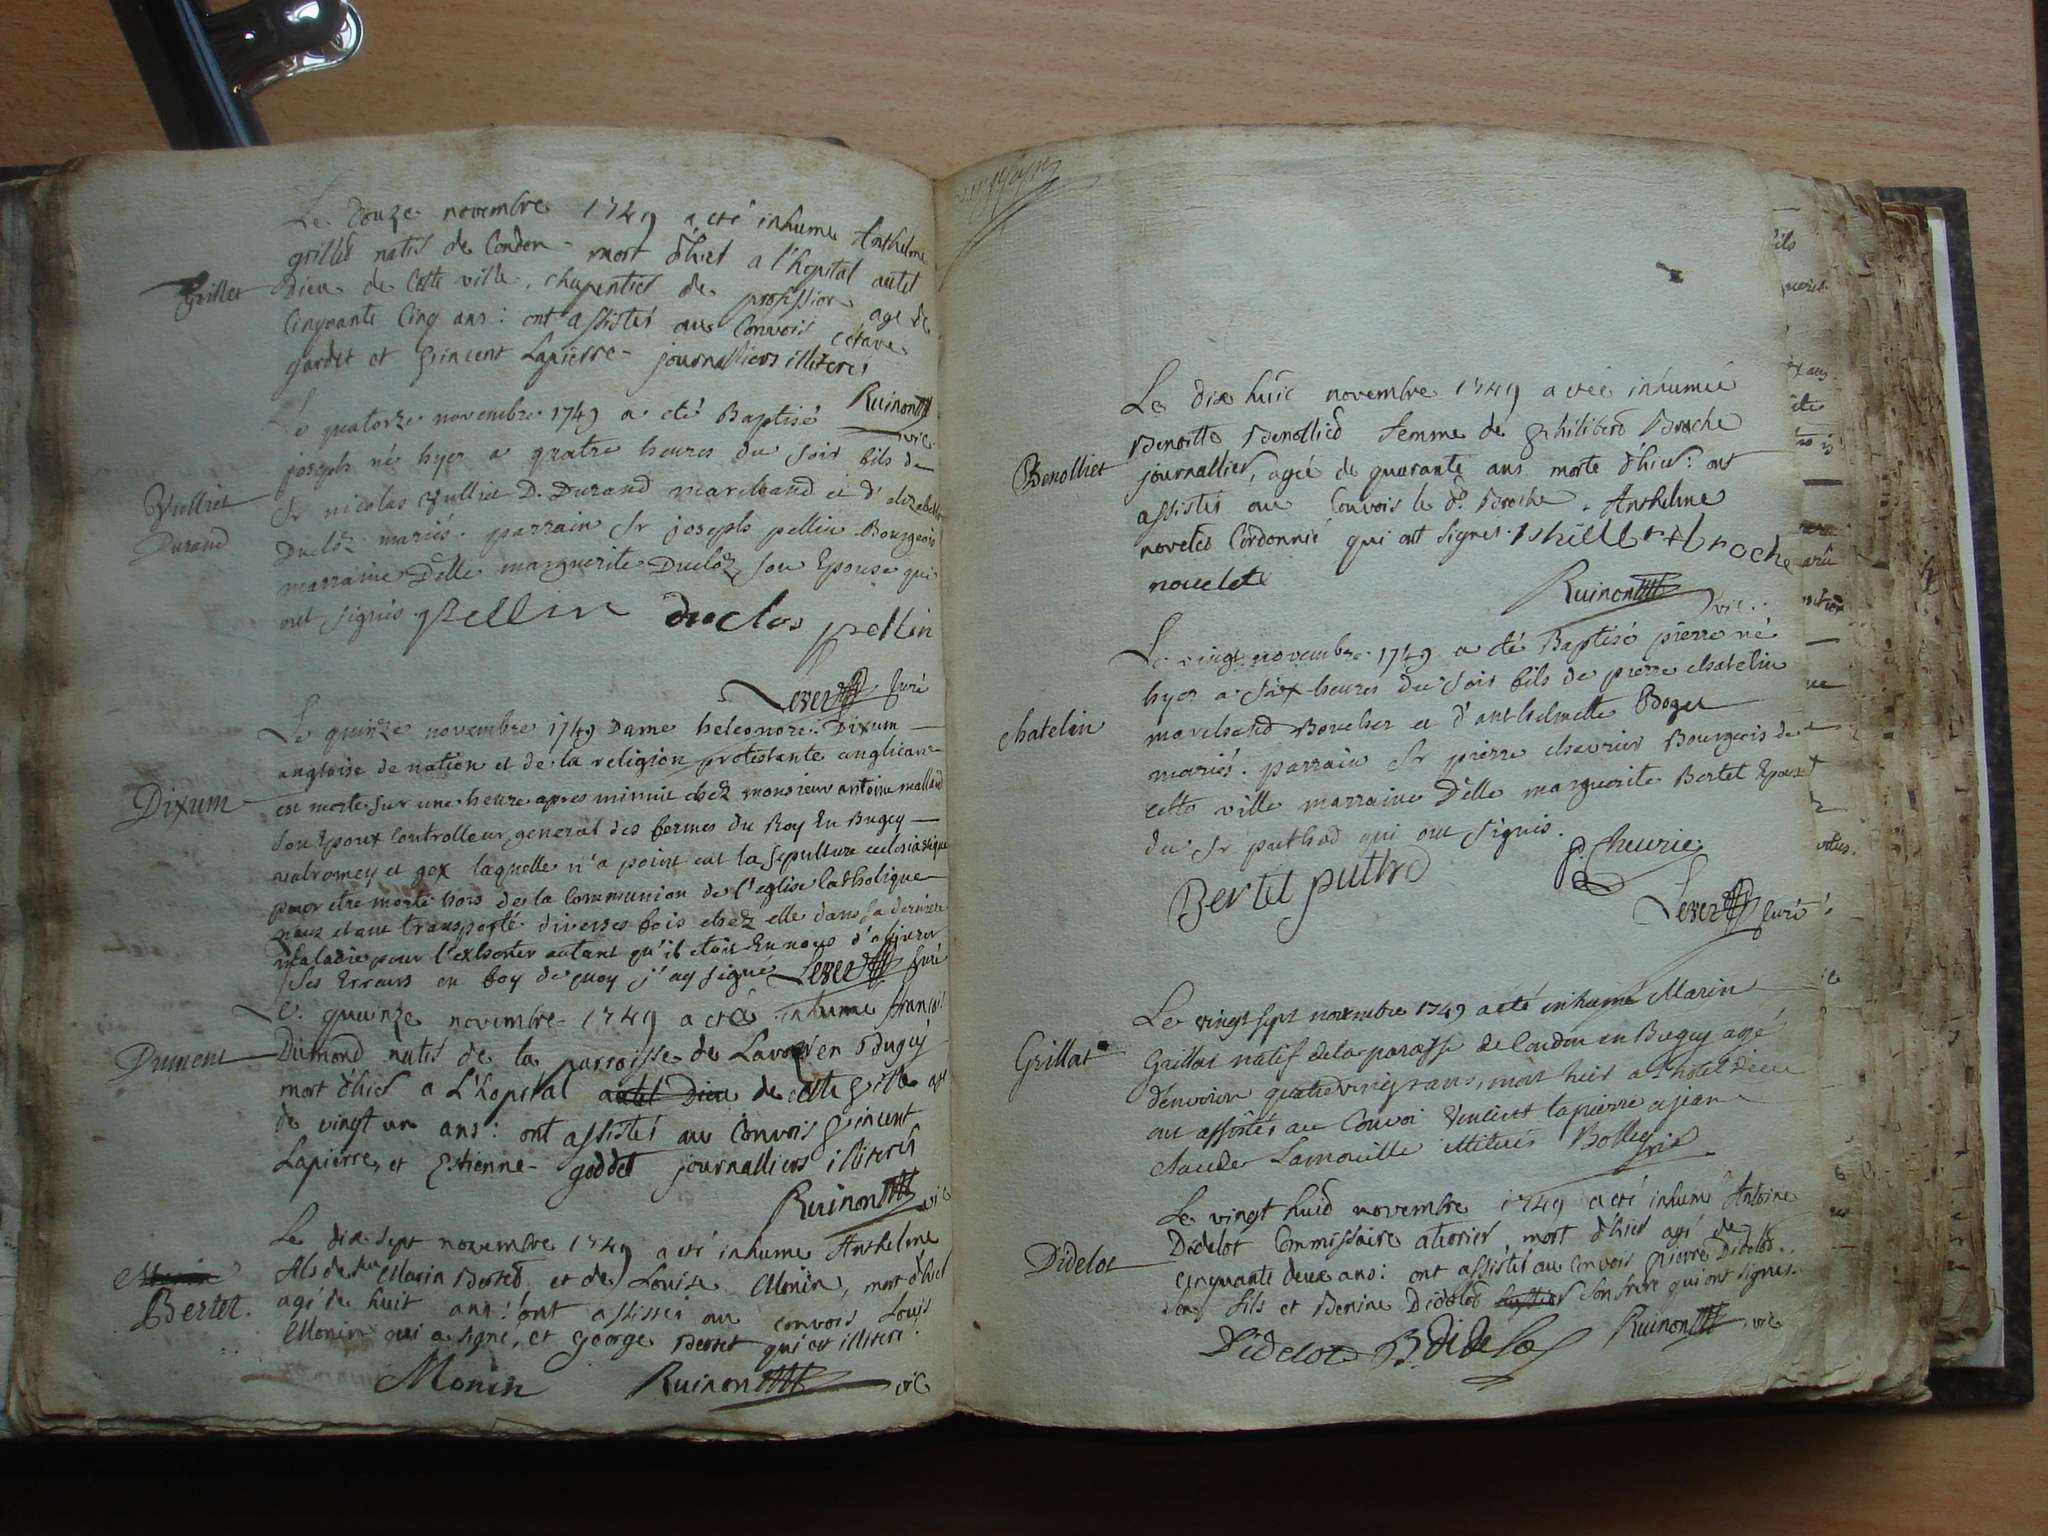 Grillet
Le douze novembre 1749 a eté inhume Anthelme
grilled natif de Condon mort d'hier a l'hopital autel
Dieu de Cette ville, chapentier de profession agé de
Cinquante Cinq ans : ont assistés au Convois
gardet et Vincent Lapierre journalliers illiterés
Ruinon vic
Vulliet
Durand
Le quatorze novembre 1749 a eté Baptisé
joseph né hyer a quatre heures du soir fils de
Sr nicolas Vulliet D. Durand marchand et d'elizabeth
Duclôz mariés. parrain Sr joseph pellin Bourgeois
marraine Delle marguerite Duclôz son Epouse qui
ont signés pellin duclos pellin
Lever Curé
Dixum
Le quinze novembre 1749 Dame heleonore Dixum
angloise de nation et de la religion protestante anglicane
est morte sur une heure apres minuit chéz monsieur antoine
son Epoux Controlleur general des fermes du Roy En Bugey
valromey et gex laquelle n'a point eut la sepulture eclesiastique
pour etre morte hors de la Communion de l'eglise Catholique
nous etant transporté diverses fois chéz elle dans sa derniere
maladie pour l'exhorter autant qu'il etoit En nous d'abjurer
ses Erreurs en foy de quoy j'ay signé Lever Curé
Dument
Le quinze novembre 1749 a eté inhume françois
Dumond natif de la parroisse de Bugey
mort d'hier a L'hopital autel Dieu de cette ville agé
de vingt un ans : ont assistés au Convois Vincent
Lapierre, et Estienne goddet journalliers illiterés
Ruinon vic
Bertet.
Le dix sept novembre 1749 a eté inhume Anthelme
fils de feu Marin Berted et de Louise Monin, mort d'hier
agé de huit ans : ont assistés au convois Louis
Monin qui a signé, et George Bertet qui est illiteré.
Monin Ruinon vic
Benolliet
Le dix huit novembre 1749 a etée inhumée
Benoitte Benollied femme de philiberd Broche
journallier, agée de quarante ans morte d'hier : ont
assistés au Convois le dt Broche, Anthelme
noveled Cordonnié qui ont signés. philibert broche
novelete
Ruinon vic.
chatelin
Le vingt novembre 1749 a eté Baptisé pierre né
hyer a six heures du soir fils de pierre chatelin
marchand Boucher et d'anthelmette Boget
mariés. parrain Sr pierre chevrier Bourgeois de
cette ville marraine Delle marguerite Bertet Epouse
du Sr puthod qui ont signés.
Bertet puthod
Lever Curé
Grillat
Le vingt sept novembre 1749 a eté inhumé Marin
Grillat natif de la paroisse de Condon en Bugey agé
d'environ quatre vingt ans, mort hier a l'hotel dieu
ont assistés au Convoi Vincent Lapierre et jean
claude Lamouille illiterés
Didelot
Le vingt huid novembre 1749 a eté inhumé Antoine
Didelot Commissaire aterrier, mort d'hier agé de
cinquante deux ans : ont assistés au Convois pierre Didelot
son fils et Benine Didelod son frere qui ont signés.
Didelot B. didelot Ruinon vic